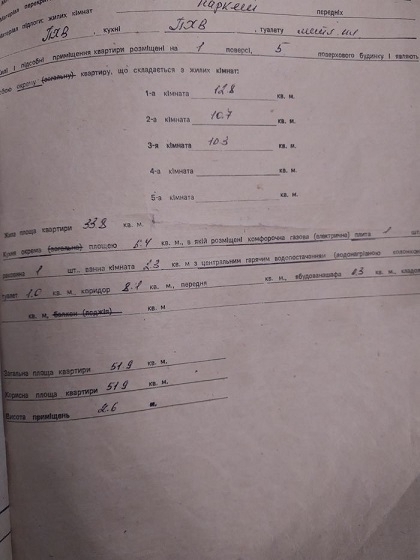 паркет
Матеріал підлоги: жилих кімнат передніх
ПХВ, кухні ПХВ, туалету
і підсобні приміщення квартири розміщені на 1 поверсі, 5 поверхового будинку і являють
окрему (загальну) квартиру, що складається з жилих кімнат:
1-а кімната 12.8 кв. м.
2-а кімната 10.7 кв. м.
3-я кімната 10.3 кв. м.
4-а кімната кв. м.
5-а кімната кв. м.
Жила площа квартири 33.8 кв. м.
Кухня окрема (загальна) площею 5.4 кв. м., в якій розміщені комфорочна газова (електрична) плита 1 шт.
1 шт., ванна кімната 2.3 кв. м з центральним гарячим водопостачанням (водонагрівною колонкою
туалет 1.0 кв. м., коридор 8.1 кв. м., передня кв. м., вбудована шафа 0.3 кв. м., кладов
кв. м, балкон (лоджія) кв. м
Загальна площа квартири 51.9 кв. м.
Корисна площа квартири 51.9 кв. м.
Висота приміщень 2.6 м.